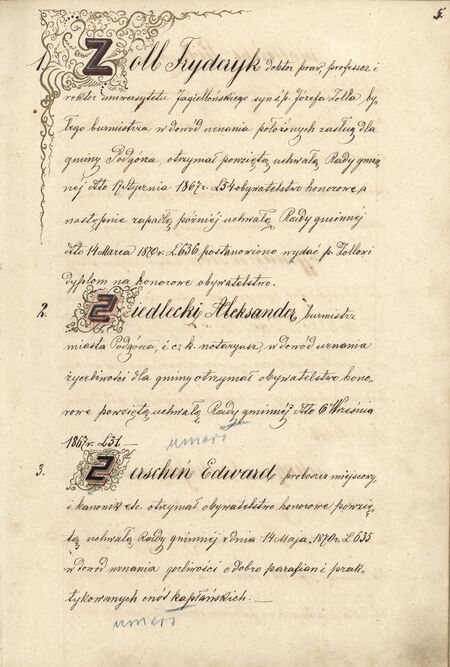 5.
1. Zoll Fryderyk doktor praw, professor i
rektor uniwersytetu Jagiellońskiego syn ś.p. Józefa Zolla by
łego burmistrza w dowód uznania położonych zasług dla
gminy Podgórza, otrzymał powziętą uchwałą Rady gmin
nej dto 17 Stycznia 1867 r. L 54 obywatelstwo honorowe, a
następnie zapadłą później uchwałą Rady gminnej
dto 14 Marca 1870 r. L 636 postanowiono wydać p. Zollowi
dyplom na honorowe obywatelstwo.
2. Siedlecki Aleksander, burmistrz
miasta Podgórza, i c. k. notaryusz, w dowód uznania
życzliwości dla gminy otrzymał obywatelstwo hono„
rowe powziętą uchwałą Rady gminnej dto 6 Września
1867 r. L 31 —
umarł
3. Serscheń Edward, proboszcz miejscowy
i kanonik etc. otrzymał obywatelstwo honorowe powzię„
tą uchwałą Rady gminnej z dnia 14 Maja 1870 r. L 635
w dowód uznania gorliwości o dobro parafian i prak„
tykowanych cnót kapłańskich. —
umarł